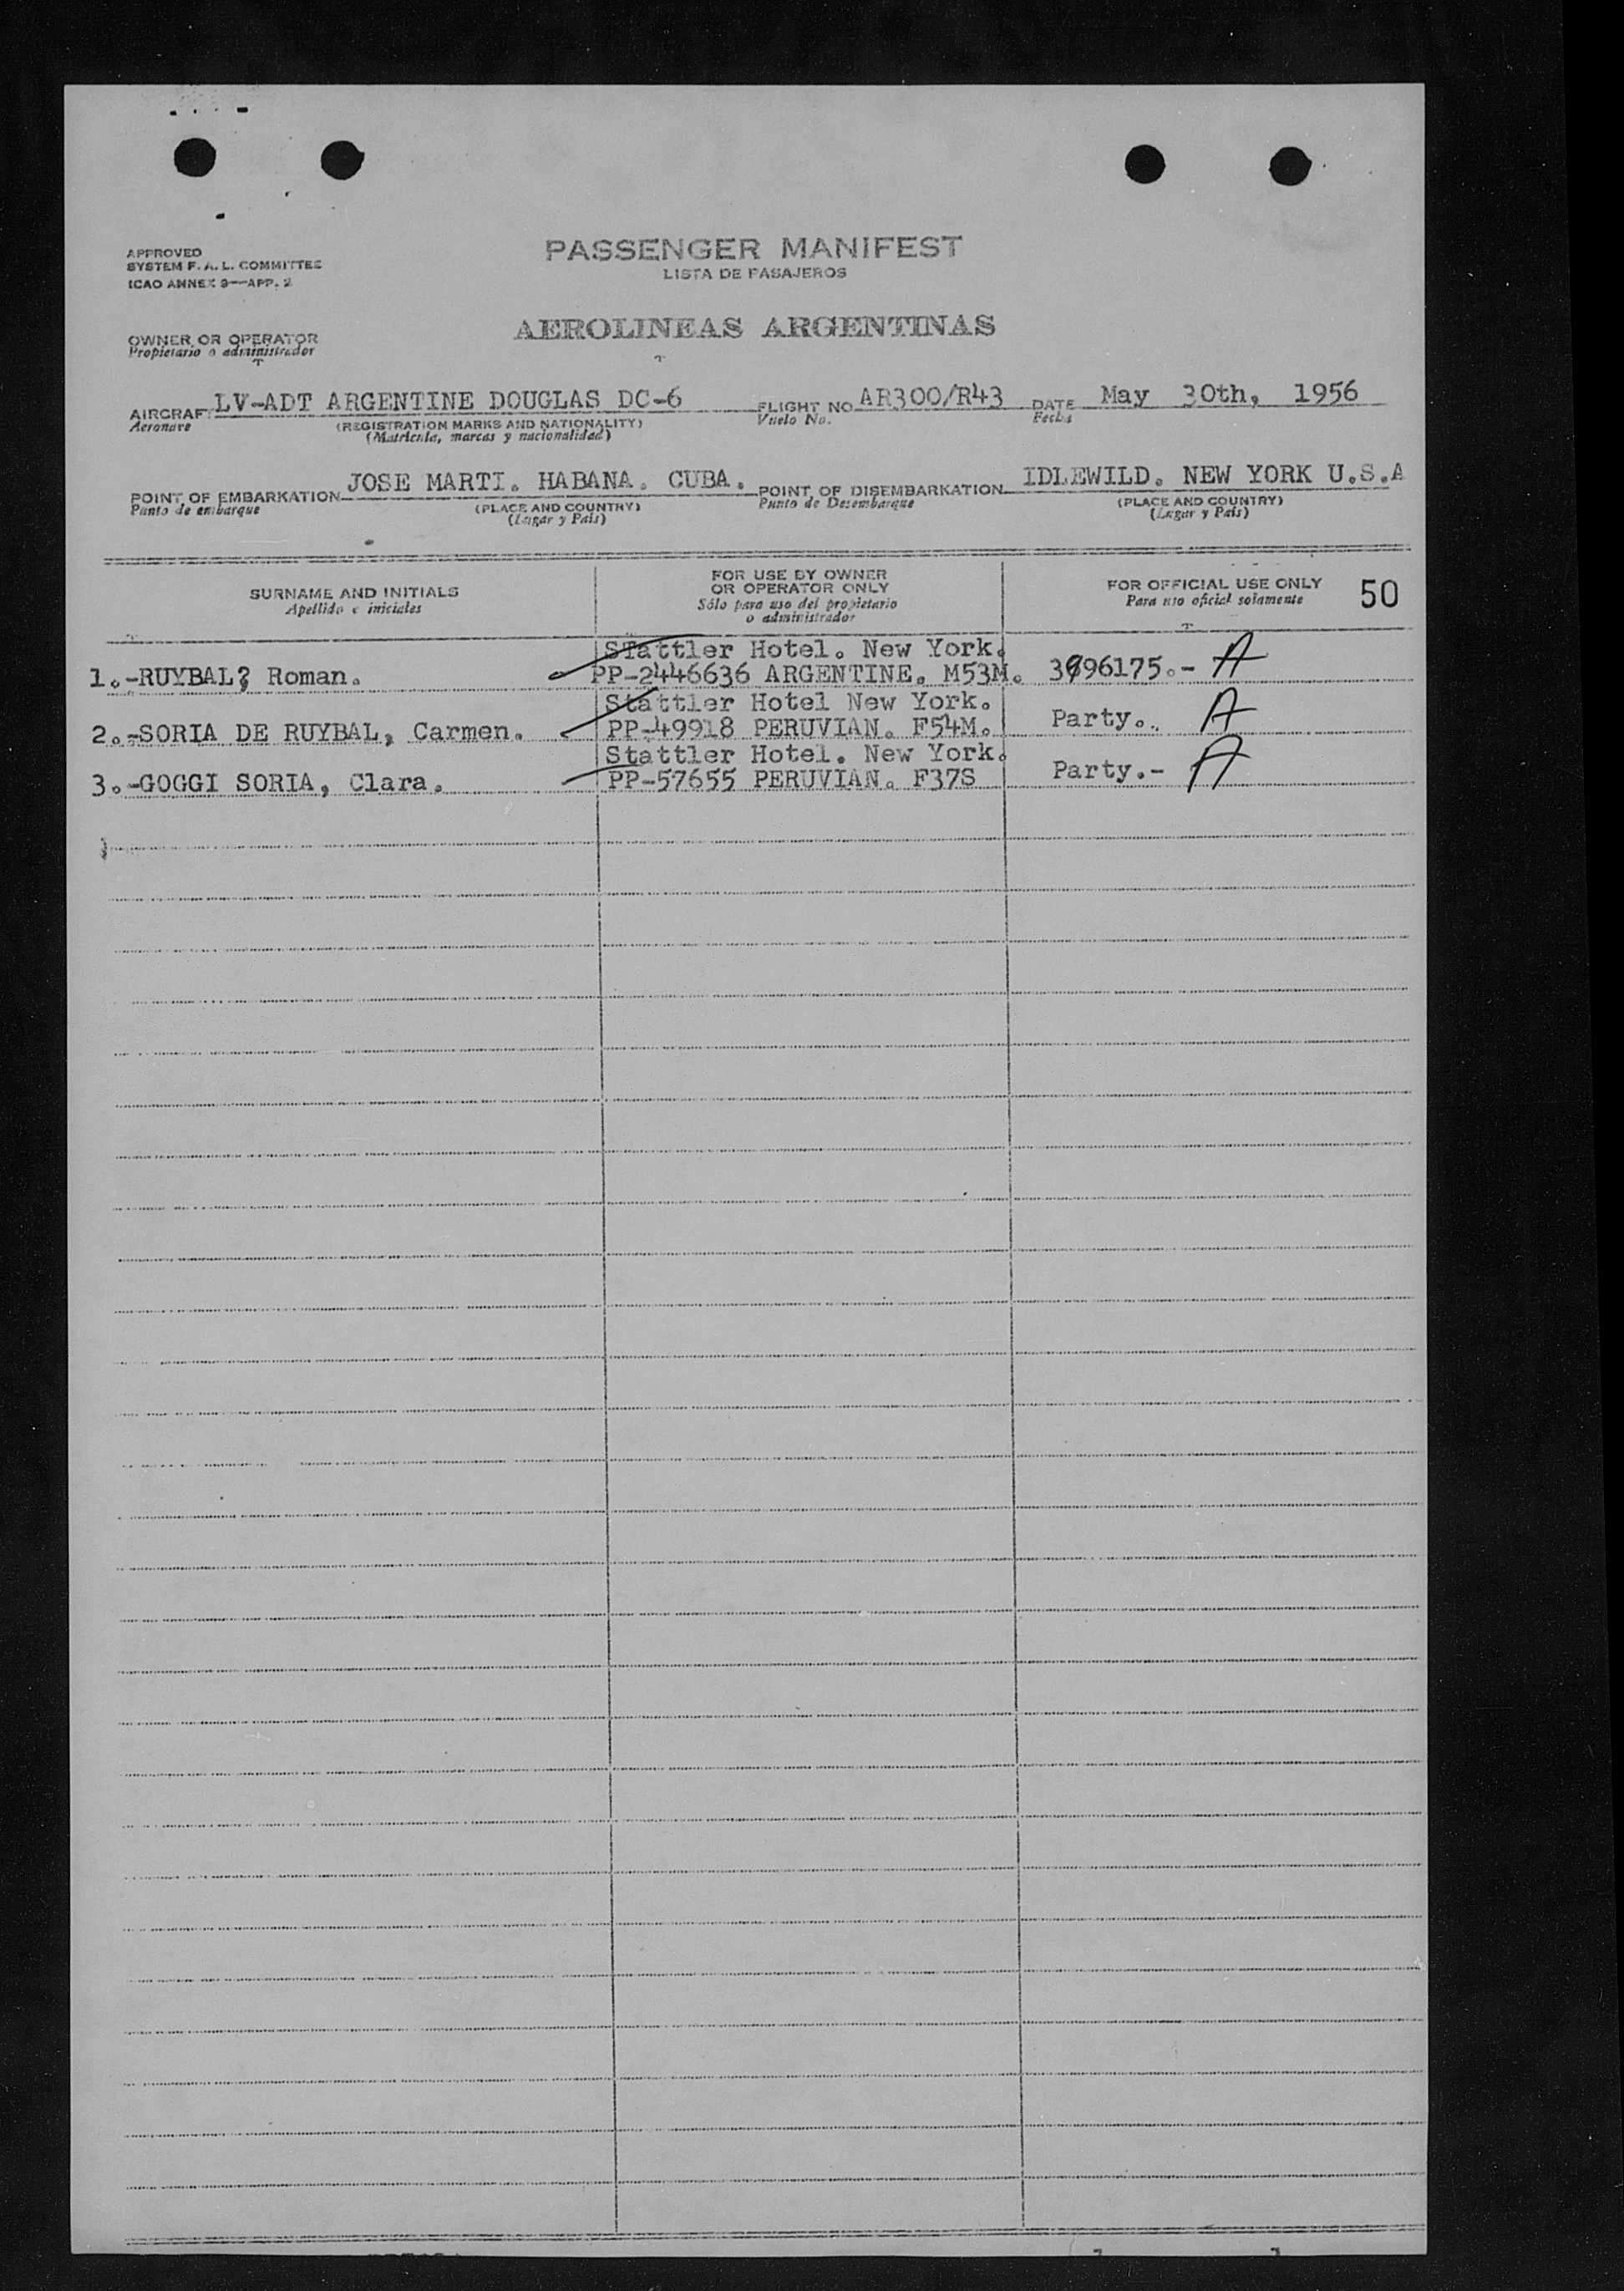 PASSENGER MANIFEST
LISTA DE PASAJEROS
APPROVED
SYSTEM F. A. L. COMMITTEE
ICAO ANNEX 9—APP. 2
AEROLINEAS ARGENTINAS
OWNER OR OPERATOR
Propietario o administrador
AIRCRAFT LV-ADT ARGENTINE DOUGLAS DC-6 FLIGHT NO. AR300/R43 DATE May 30th, 1956
Aeronave (REGISTRATION MARKS AND NATIONALITY) Vuelo No. Fecha
(Matrícula, marcas y nacionalidad)
POINT OF EMBARKATION JOSE MARTI. HABANA. CUBA. POINT OF DISEMBARKATION IDLEWILD. NEW YORK U.S.A
Punto de embarque (PLACE AND COUNTRY) Punto de Desembarque (PLACE AND COUNTRY)
(Lugar y País) (Lugar y País)
SURNAME AND INITIALS
Apellido e iniciales
FOR USE BY OWNER
OR OPERATOR ONLY
Sólo para uso del propietario
o administrador
FOR OFFICIAL USE ONLY 50
Para uso oficial solamente
STattler Hotel. New York.
1.-RUYBAL? Roman. PP-2446636 ARGENTINE. M53M. 96175.- A
Stattler Hotel New York.
2.-SORIA DE RUYBAL, Carmen. PP-49918 PERUVIAN. F54M. Party.. A
Stattler Hotel. New York.
3.-GOGGI SORIA, Clara. PP-57655 PERUVIAN. F37S Party.- A